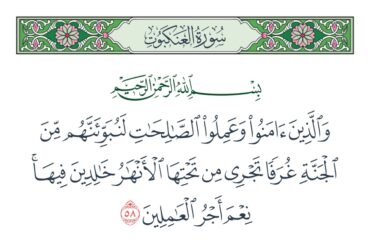 سُورَةُ العَنكَبُوتِ
بِسْمِ ٱللَّهِ ٱلرَّحْمَٰنِ ٱلرَّحِيمِ
وَٱلَّذِينَ ءَامَنُوا۟ وَعَمِلُوا۟ ٱلصَّـٰلِحَـٰتِ لَنُبَوِّئَنَّهُم مِّنَ
ٱلْجَنَّةِ غُرَفًا تَجْرِى مِن تَحْتِهَا ٱلْأَنْهَـٰرُ خَـٰلِدِينَ فِيهَا ۚ
نِعْمَ أَجْرُ ٱلْعَـٰمِلِينَ ٥٨